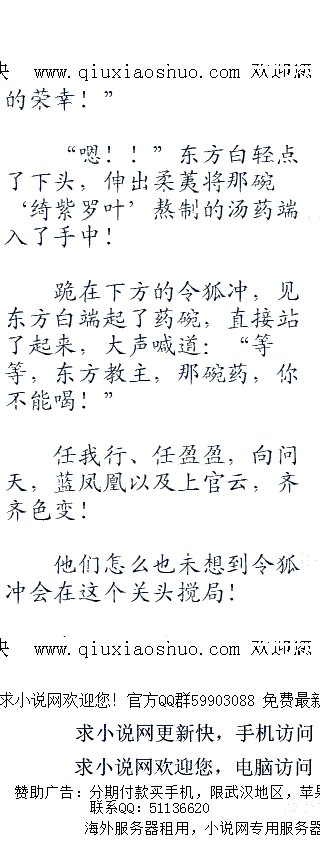 快 www.qiuxiaoshuo.com 欢迎您
的荣幸！”
“嗯！！”东方白轻点
了下头，伸出柔荑将那碗
‘绮紫罗叶’熬制的汤药端
入了手中！
跪在下方的令狐冲，见
东方白端起了药碗，直接站
了起来，大声喊道：“等
等，东方教主，那碗药，你
不能喝！”
任我行、任盈盈，向问
天，蓝凤凰以及上官云，齐
齐色变！
他们怎么也未想到令狐
冲会在这个关头搅局！
快 www.qiuxiaoshuo.com 欢迎您
求小说网欢迎您！官方QQ群59903088 免费最新
求小说网更新快，手机访问
求小说网欢迎您，电脑访问
赞助广告：分期付款买手机，限武汉地区，苹果
联系QQ：51136620
海外服务器租用，小说网专用服务器